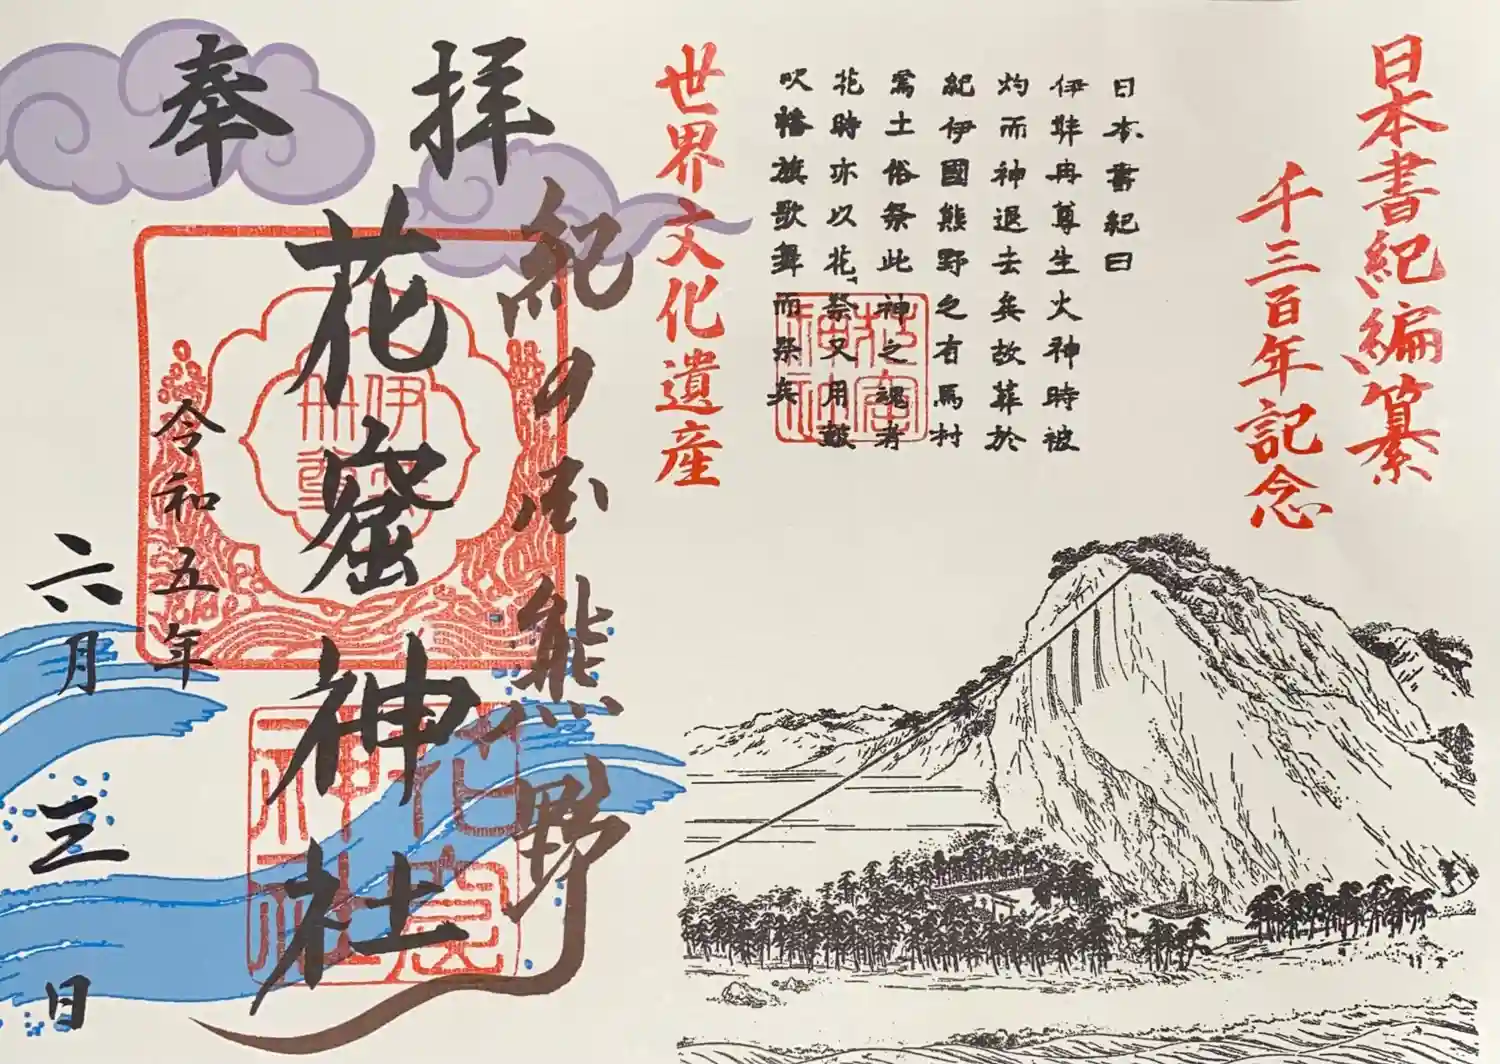 日本書紀編纂
千三百年記念
日本書紀曰
伊弉冉尊生火神時被
灼而神退去矣故葬於
紀伊國熊野之有馬村
焉土俗祭此神之魂者
花時亦以花祭又用鼓
吹幡旗歌舞而祭矣
花窟
神社
世界文化遺産
奉拝
紀の国熊野
花窟神社
伊弉
冊尊
花窟
神社
令和五年
六月三日